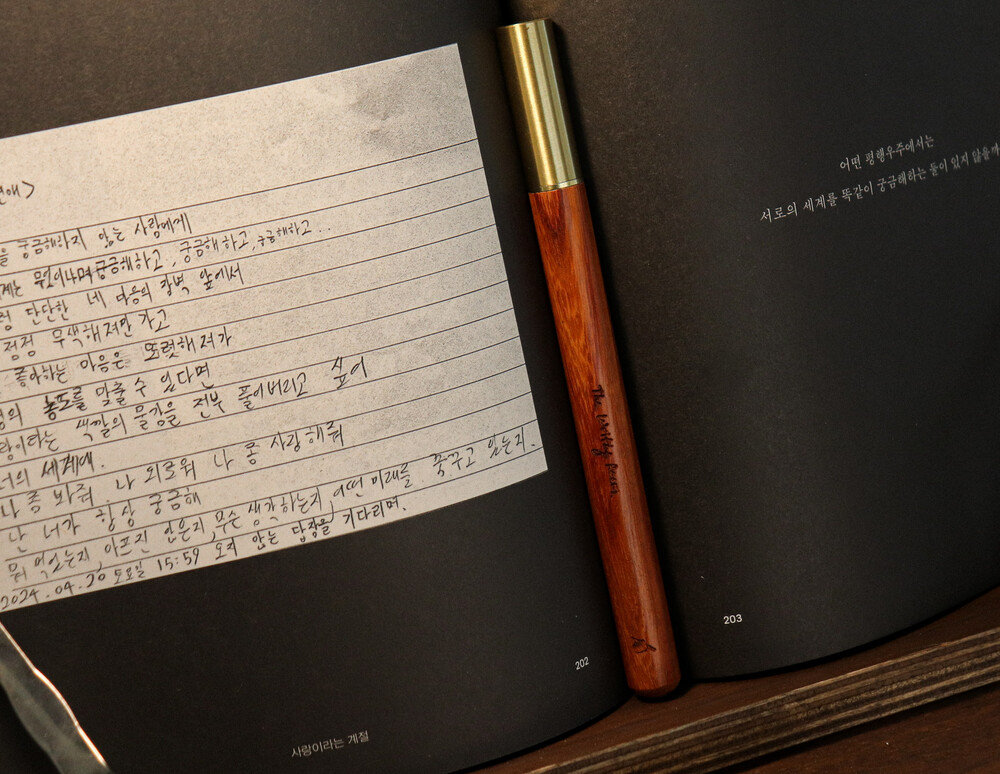 연애>
를 궁금해하지 않는 사람에게
궁금해하고, 궁금해하고, 궁금해하고..
단단한 네 마음의 장벽 앞에서
점점 무색해져만 가고
좋아하는 마음은 또렷해져가
농도를 맞출 수 있다면
색깔의 물감을 전부 풀어버리고 싶어
너의 세계에.
나 좀 봐줘. 나 외로워 나 좀 사랑해줘
난 너가 항상 궁금해
뭐 먹었는지, 아프진 않은지, 무슨 생각하는지, 어떤 미래를 꿈꾸고 있는지.
2024.04.20 토요일 15:59 오지 않는 답장을 기다리며.
202
사랑이라는 계절
The
어떤 평행우주에서는
서로의 세계를 똑같이 궁금해하는 둘이 있지 않을까
203